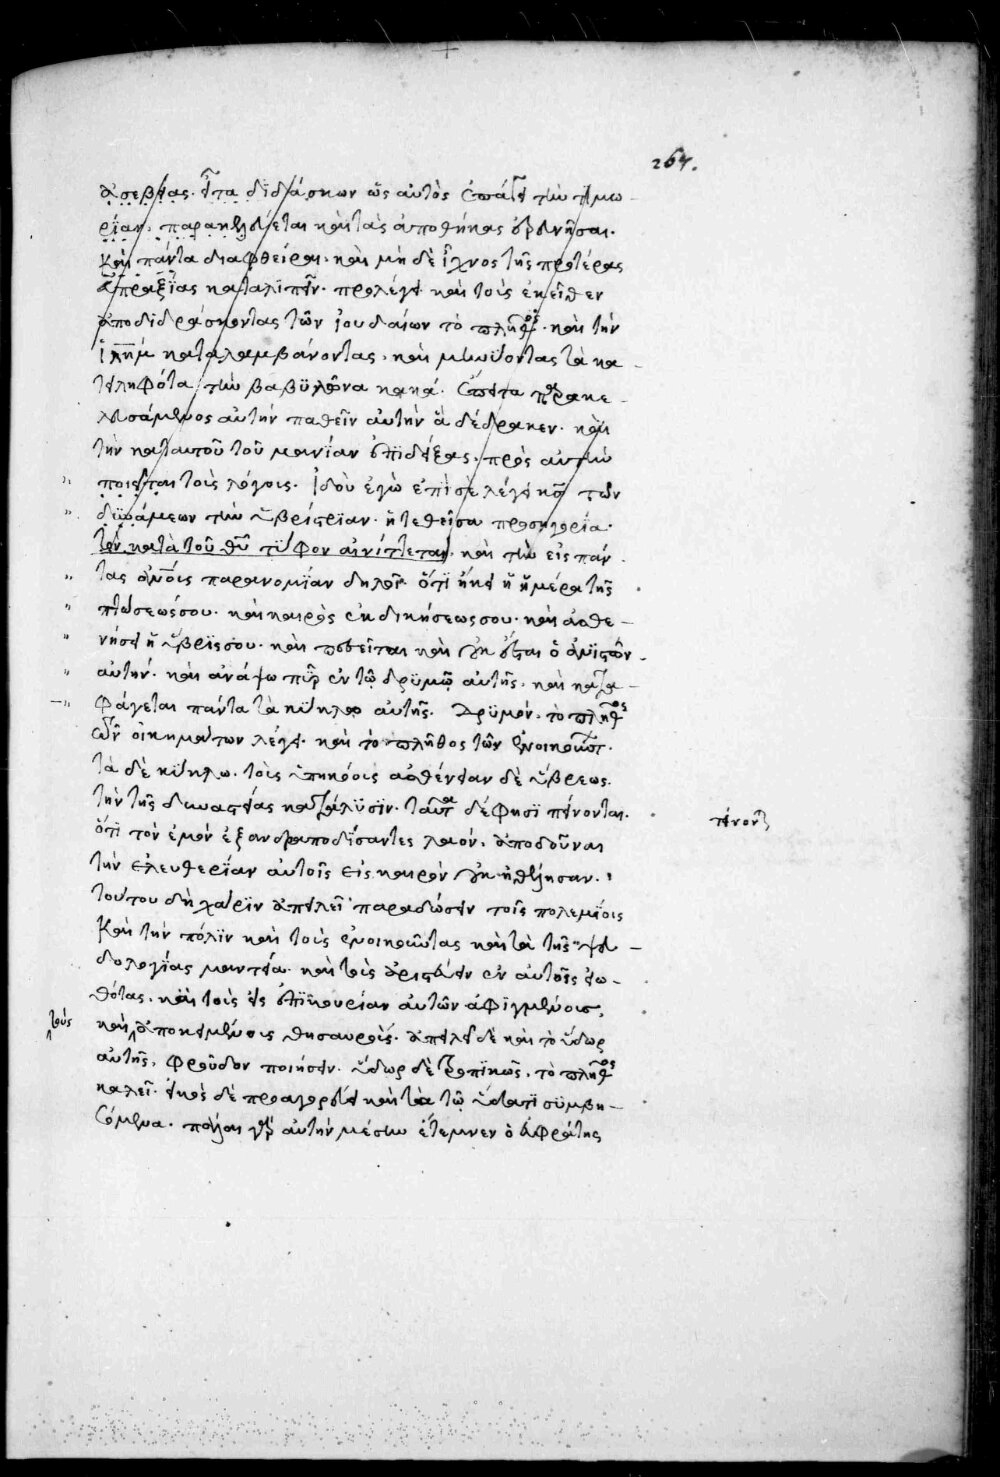 267.
ἀσεβείας. εἶτα διδάσκων ὡς αὐτὸς ἐπάγει τὴν τιμω-
ρίαν. παρακελεύεται καὶ τὰς ἀποθήκας ἐρευνῆσαι.
καὶ πάντα διαφθεῖραι. καὶ μὴ δὲ ἴχνος τῆς προτέρας
εὐπραξίας καταλιπεῖν. προλέγει καὶ τοὺς ἐκεῖθεν
ἀποδιδράσκοντας τῶν ἰουδαίων τὸ πλῆθος. καὶ τὴν
ἱλημ καταλαμβάνοντας. καὶ μηνύοντας τὰ κα-
τειληφότα τὴν βαβυλῶνα κακά. ἔπειτα παρακε-
λευσάμενος αὐτὴν παθεῖν αὐτὴν ἃ δέδρακεν. καὶ
τὴν κατ αυτοῦ τοῦ μανίαν ἐπιδείξας. πρὸς αὐτὴν
ποιεῖται τοὺς λόγους. Ἰδοὺ ἐγὼ ἐπὶ σὲ λέγει κς τῶν
δυνάμεων τὴν ὑβρίστριαν. ἡ τεθεῖσα προσηγορία.
τὸν κατὰ τοῦ θυ τύφον αἰνίττεται. καὶ τὴν εἰς πάν
τας ανοις παρανομίαν δηλοῖ. ὅτι ἥκει ἡ ἡμέρα τῆς
πτώσεώς σου. καὶ καιρὸς ἐκδικήσεως σου. καὶ ἀσθε-
νήσει ἡ ὕβρις σου. καὶ πεσεῖται καὶ οὐκ ἔσται ὁ ἀνιστῶν
αὐτήν. καὶ ἀνάψω πῦρ ἐν τῷ δρυμῷ αὐτῆς. καὶ κατα-
φάγεται πάντα τὰ κύκλῳ αὐτῆς. Δρυμόν. τὸ πλῆθος
τῶν οἰκημάτων λέγει. καὶ τὸ πλῆθος τῶν ἐνοικούντων.
τὰ δὲ κύκλῳ. τοὺς ὑπηκόους ἀσθένειαν δὲ ὕβρεως.
τὴν τῆς δυναστείας κατάλυσιν. ταῦτα δέ φησι πείσονται.
πείσονται
ὅτι τὸν ἐμὸν ἐξανδραποδίσαντες λαόν. ἀποδοῦναι
τὴν ἐλευθερίαν αὐτοῖς εἰς καιρὸν οὐκ ἠθέλησαν.
τούτου δὴ χάριν ἀπειλεῖ παραδώσειν τοῖς πολεμίοις
καὶ τὴν πόλιν καὶ τοὺς ἐνοικοῦντας καὶ τὰ τῆς ψευ-
δολογίας μαντεῖα. καὶ τοὺς ἀριστεύειν ἐν αὐτοῖς εἰω-
θότας. καὶ τοὺς εἰς ἐπικουρίαν αὐτῶν ἀφιγμένους.
τοὺς
καὶ ἀποκειμένους θησαυρούς. ἀπειλεῖ δὲ καὶ τὸ ὕδωρ
αὐτῆς, φροῦδον ποιήσειν. ὕδωρ δὲ τροπικῶς, τὸ πλῆθος
καλεῖ. εἰκὸς δὲ προαγορεύει καὶ τὰ τῷ ὕδατι συμβη-
σόμενα. πάλαι γὰρ αὐτὴν μέσην ἔτεμνεν ὁ εὐφράτης